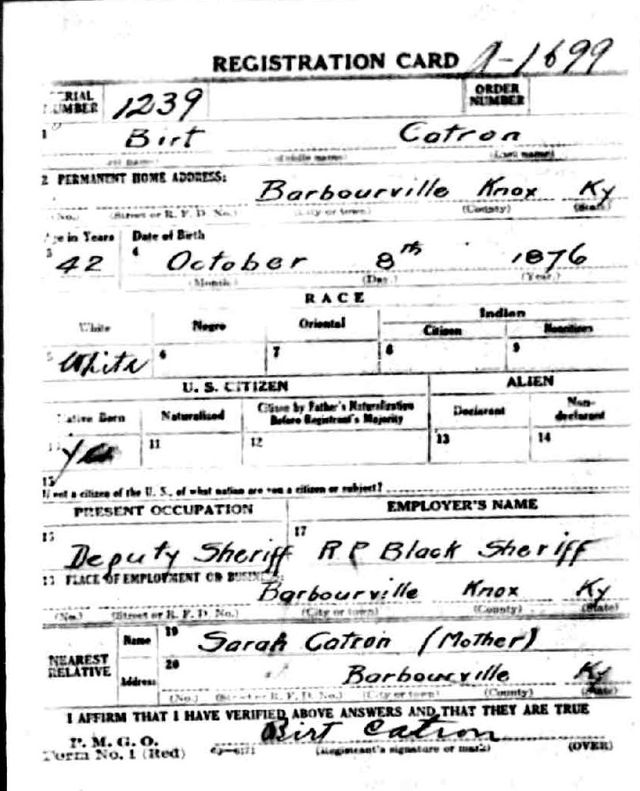 REGISTRATION CARD A-1699
SERIAL NUMBER 1239 ORDER NUMBER
1 Birt Catron
(Middle name) (Last name)
2 PERMANENT HOME ADDRESS:
Barbourville Knox Ky
(No.) (Street or R. F. D. No.) (City or town) (County) (State)
Age in Years Date of Birth
3 42 4 October 8th 1876
(Month.) (Day.) (Year.)
RACE
White Negro Oriental Indian
Citizen Noncitizen
5 White 6 7 8 9
U. S. CITIZEN ALIEN
Native Born Naturalized Citizen by Father's Naturalization Before Registrant's Majority Declarant Non-declarant
Yes 11 12 13 14
15
If not a citizen of the U. S., of what nation are you a citizen or subject?
PRESENT OCCUPATION EMPLOYER'S NAME
16 17
Deputy Sheriff R P Black Sheriff
18 PLACE OF EMPLOYMENT OR BUSINESS:
Barbourville Knox Ky
(No.) (Street or R. F. D. No.) (City or town) (County) (State)
NEAREST RELATIVE Name 19 Sarah Catron (Mother)
Address 20 Barbourville Ky
(No.) (Street or R. F. D. No.) (City or town) (County) (State)
I AFFIRM THAT I HAVE VERIFIED ABOVE ANSWERS AND THAT THEY ARE TRUE
P. M. G. O. Birt Catron
Form No. 1 (Red) (Registrant's signature or mark) (OVER)